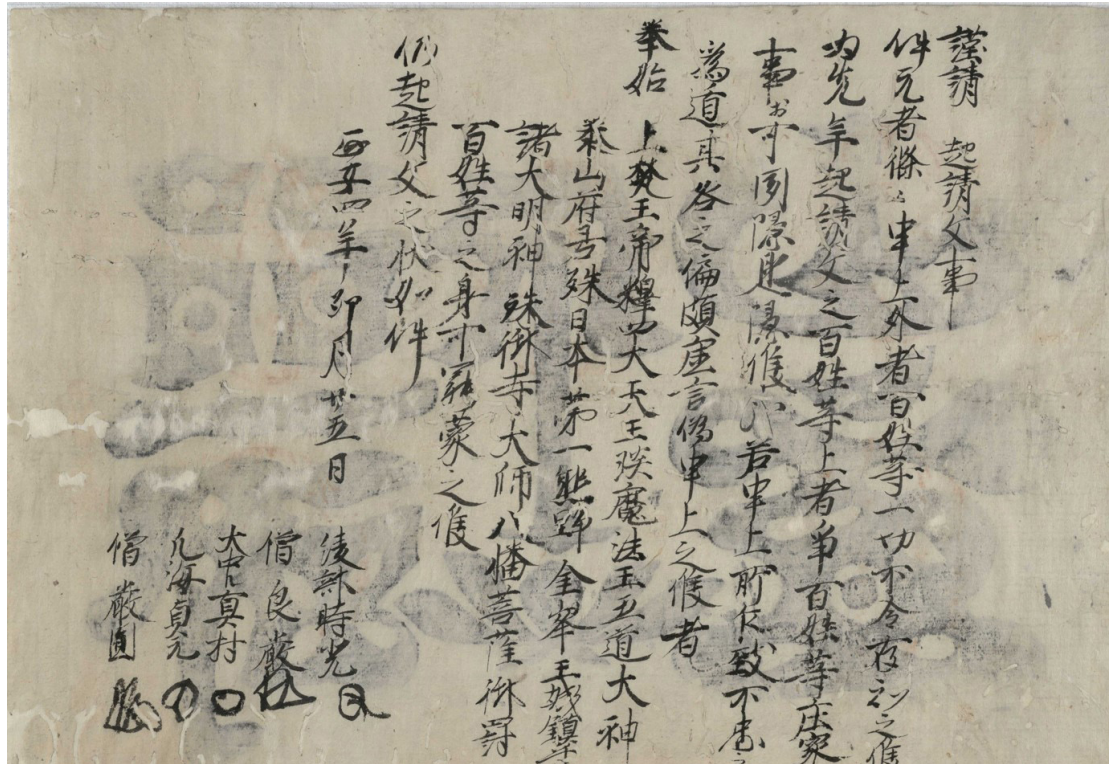 謹請 起請文事
件元者條々申上外者百姓等一切不令存知之候
為先年起請文之百姓等上者争百姓等庄家
事お可同隠思隠候哉 若申上所仁致不忠之
為道具各之偏頗虚言偽申上之候者
奉始 上梵王帝釋四大天王琰魔法王五道大神
泰山府君殊日本第一熊野 金峯王城鎮守
諸大明神 殊御寺大師八幡菩薩御罸
百姓等之身可罷蒙之候
仍起請文之状如件
正安四年卯月廿五日
綾部時光
僧良厳
大中真村
凡海貞元
僧厳圓